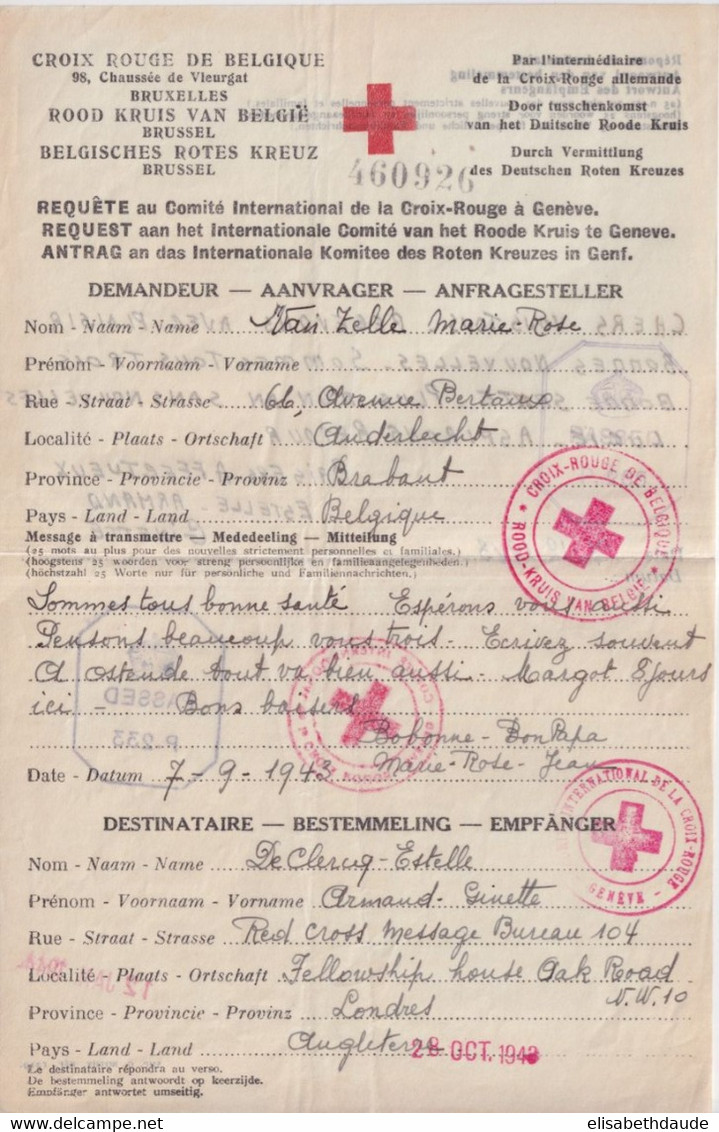 CROIX ROUGE DE BELGIQUE
98, Chaussée de Vleurgat
BRUXELLES
ROOD KRUIS VAN BELGIË
BRUSSEL
BELGISCHES ROTES KREUZ
BRUSSEL
460926
Par l'intermédiaire
de la Croix-Rouge allemande
Door tusschenkomst
van het Duitsche Roode Kruis
Durch Vermittlung
des Deutschen Roten Kreuzes
REQUÊTE au Comité International de la Croix-Rouge à Genève.
REQUEST aan het Internationale Comité van het Roode Kruis te Geneve.
ANTRAG an das Internationale Komitee des Roten Kreuzes in Genf.
DEMANDEUR — AANVRAGER — ANFRAGESTELLER
Nom - Naam - Name Van Zelle Marie-Rose
Prénom - Voornaam - Vorname
Rue - Straat - Strasse 66, Avenue Bertaux
Localité - Plaats - Ortschaft Anderlecht
Province - Provincie - Provinz Brabant
Pays - Land - Land Belgique
CROIX-ROUGE DE BELGIQUE * ROOD-KRUIS VAN BELGIË *
Message à transmettre — Mededeeling — Mitteilung
(25 mots au plus pour des nouvelles strictement personnelles et familiales.)
(hoogstens 25 woorden voor streng persoonlijke en familieaangelegenheden.)
(höchstzahl 25 Worte nur für persönliche und Familiennachrichten.)
Sommes tous bonne santé Espérons vous aussi
Pensons beaucoup vous trois - Ecrivez souvent
A ostende tout va bien aussi - Margot 8 jours
ici - Bons baisers
Bobonne - Bon Papa
Marie-Rose - Jean
PASSED
P.233
Date - Datum 7-9-1943
DESTINATAIRE — BESTEMMELING — EMPFÄNGER
INTERNATIONAL DE LA CROIX-ROUGE - GENÈVE -
Nom - Naam - Name De Clercq - Estelle
Prénom - Voornaam - Vorname Armand - Ginette
Rue - Straat - Strasse Red Cross Message Bureau 104
Localité - Plaats - Ortschaft Fellowship house Oak Road
N.W.10
Province - Provincie - Provinz Londres
Pays - Land - Land Angleterre
28 OCT. 1943
Le destinataire répondra au verso.
De bestemmeling antwoordt op keerzijde.
Empfänger antwortet umseitig.
elisabethdaude